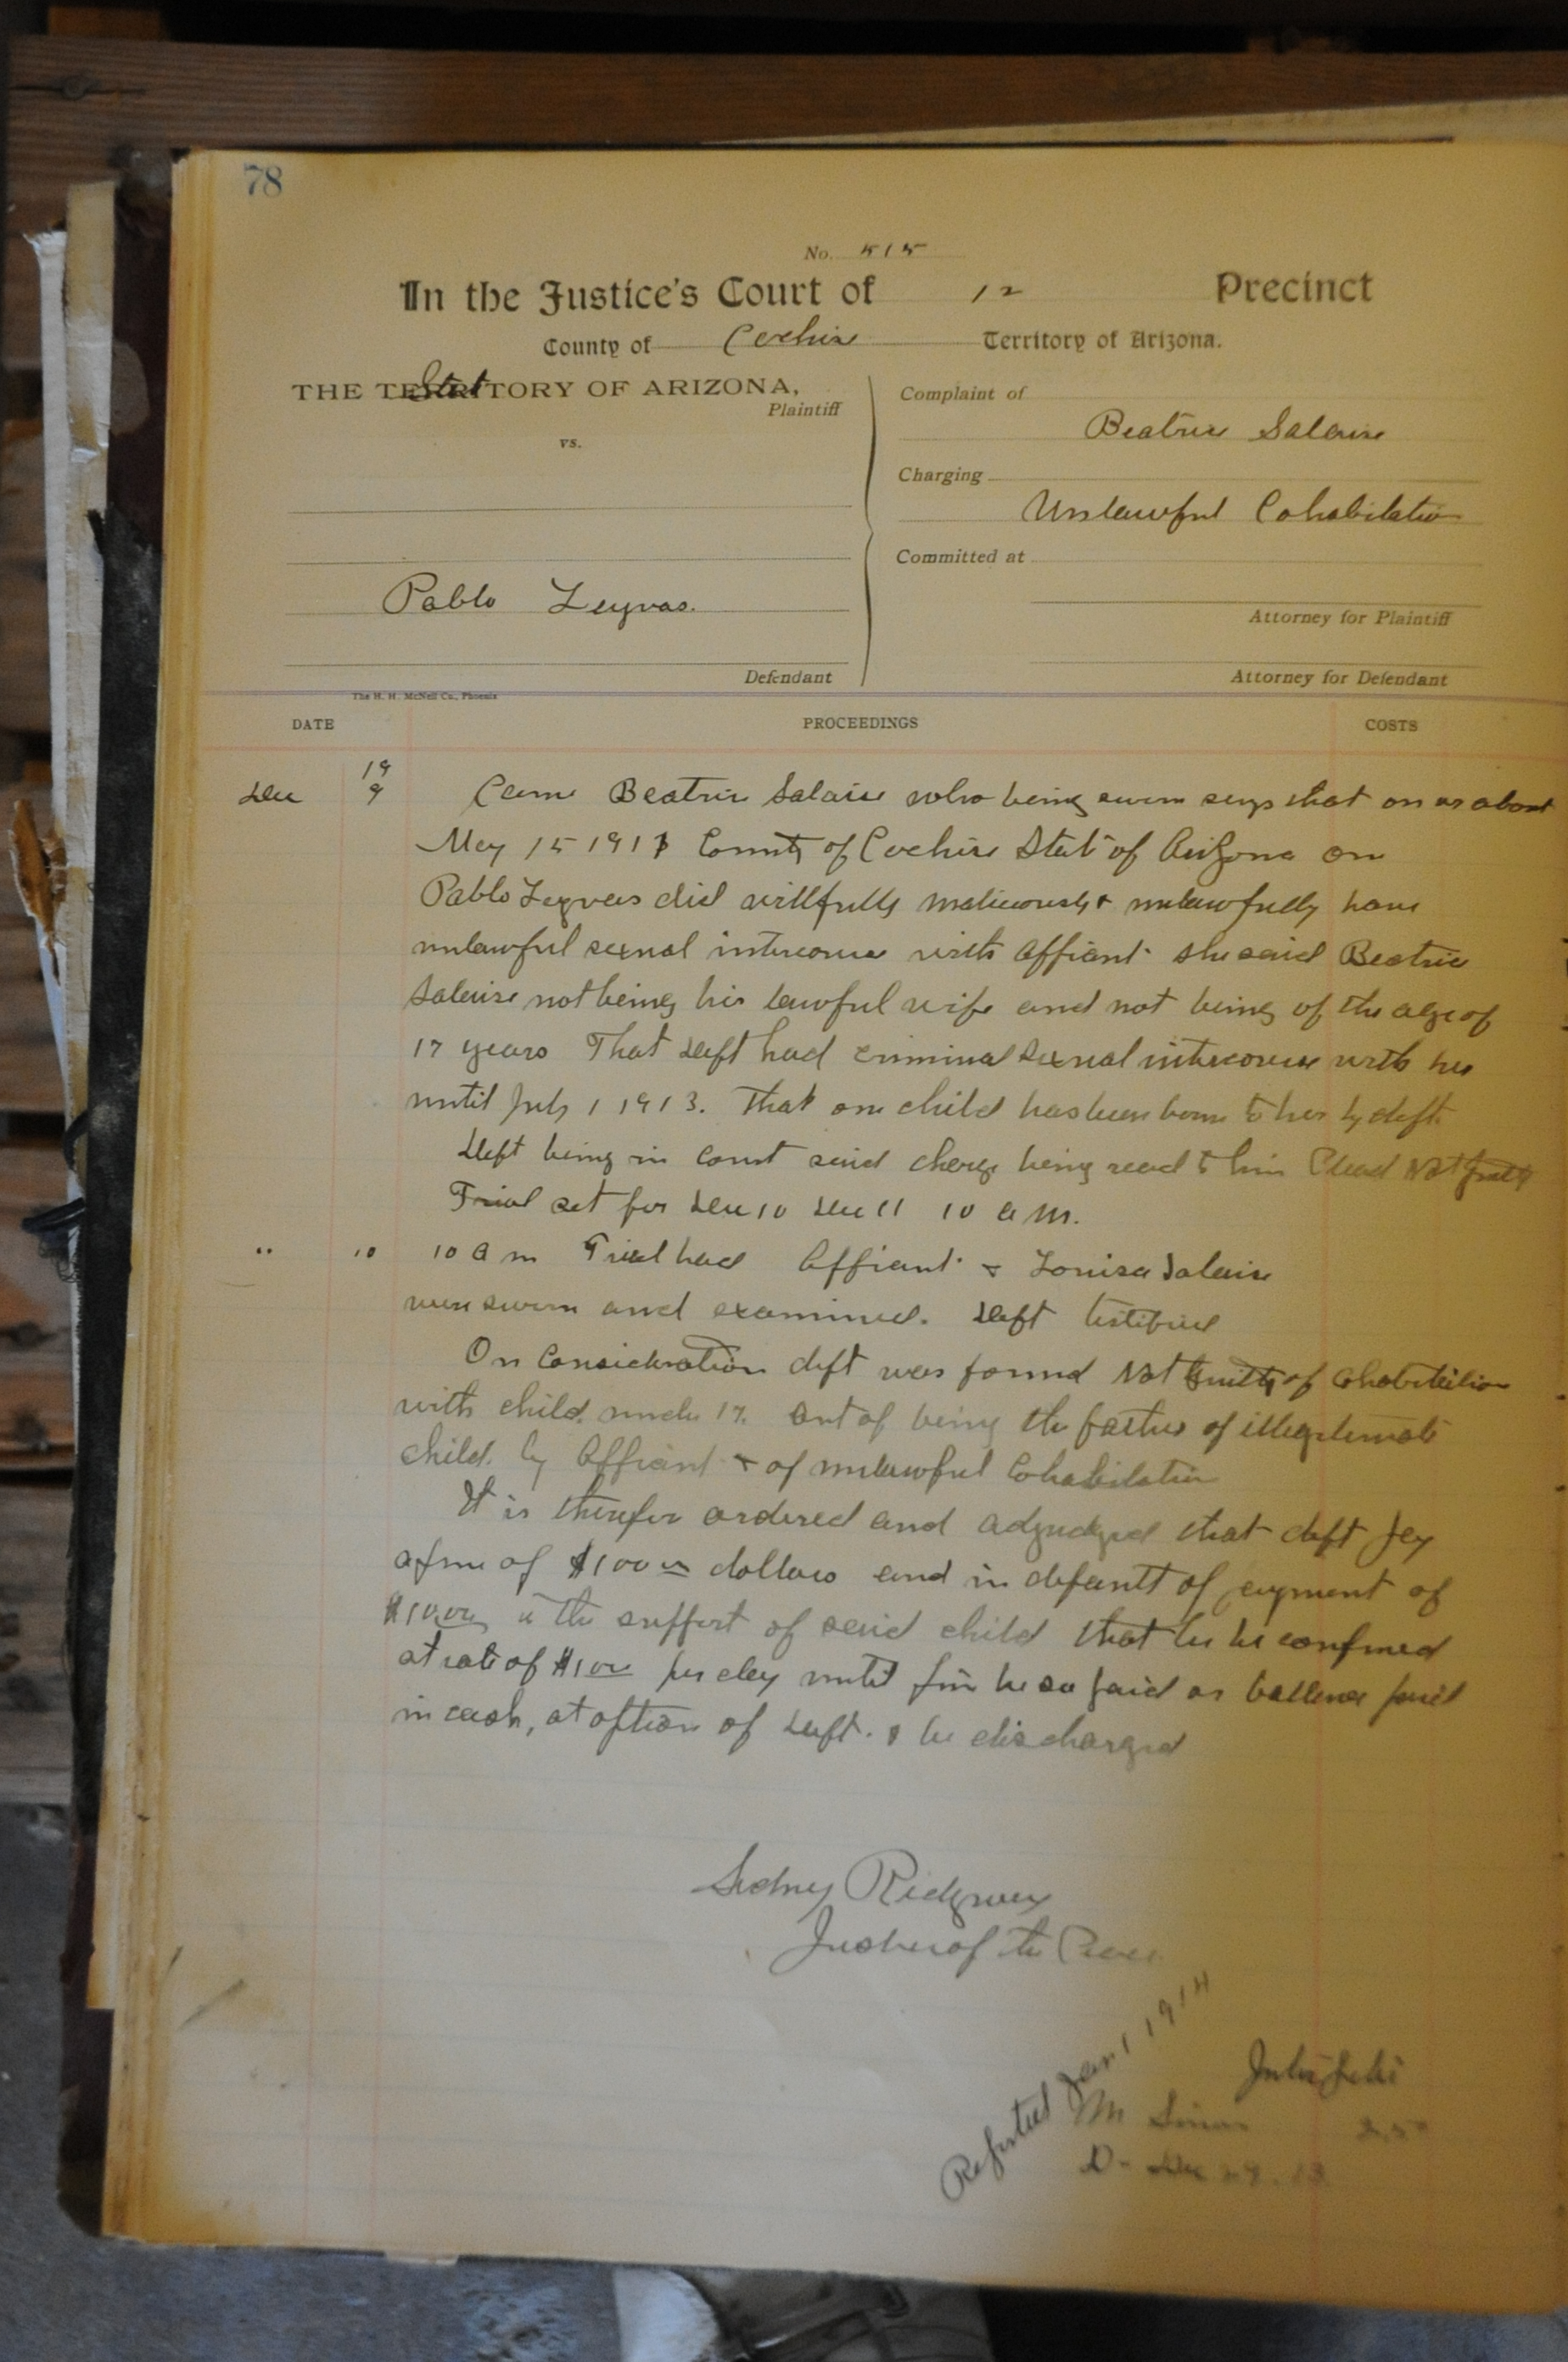 78
No. 515
In the Justice's Court of 12 Precinct
County of Cochise Territory of Arizona.
THE TERRITORY OF ARIZONA,
State
Plaintiff
vs.
Pablo Leyvas.
Defendant
Complaint of
Beatrice
Charging
Unlawful Cohabitation
Committed at
Attorney for Plaintiff
Attorney for Defendant
The H. H. McNeil Co., Phoenix
DATE PROCEEDINGS COSTS
19
Dec 9 Came Beatrice who being sworn says that on or about
May 15 191 County of Cochise State of Arizona one
Pablo Leyvas did willfully maliciously & unlawfully have
unlawful sexual intercourse with affiant she said Beatrice
not being his lawful wife and not being of the age of
17 years That deft had criminal sexual intercourse with her
until July 1 1913. That one child has been born to her by deft.
Deft being in court said charge being read to him Plead Not Guilty
Trial set for Dec 10 Dec 11 10 a.m.
" 10 10 a m Trial had Affiant & Louisa
were sworn and examined. Deft testified
On Consideration deft was found Not Guilty of Cohabitation
with child under 17. but of being the father of illegitimate
child by Affiant & of unlawful Cohabitation
It is therefor ordered and adjudged that deft pay
a fine of $100 00 dollars and in default of payment of
the support of said child that he be confined
at rate of $1 00 per day until fine be so paid or ballence paid
in cash, at option of deft. & be discharged
Sidney Ridgway
Justice of the Peace
Reported Jan 1 1914
M
Dec 29. 13